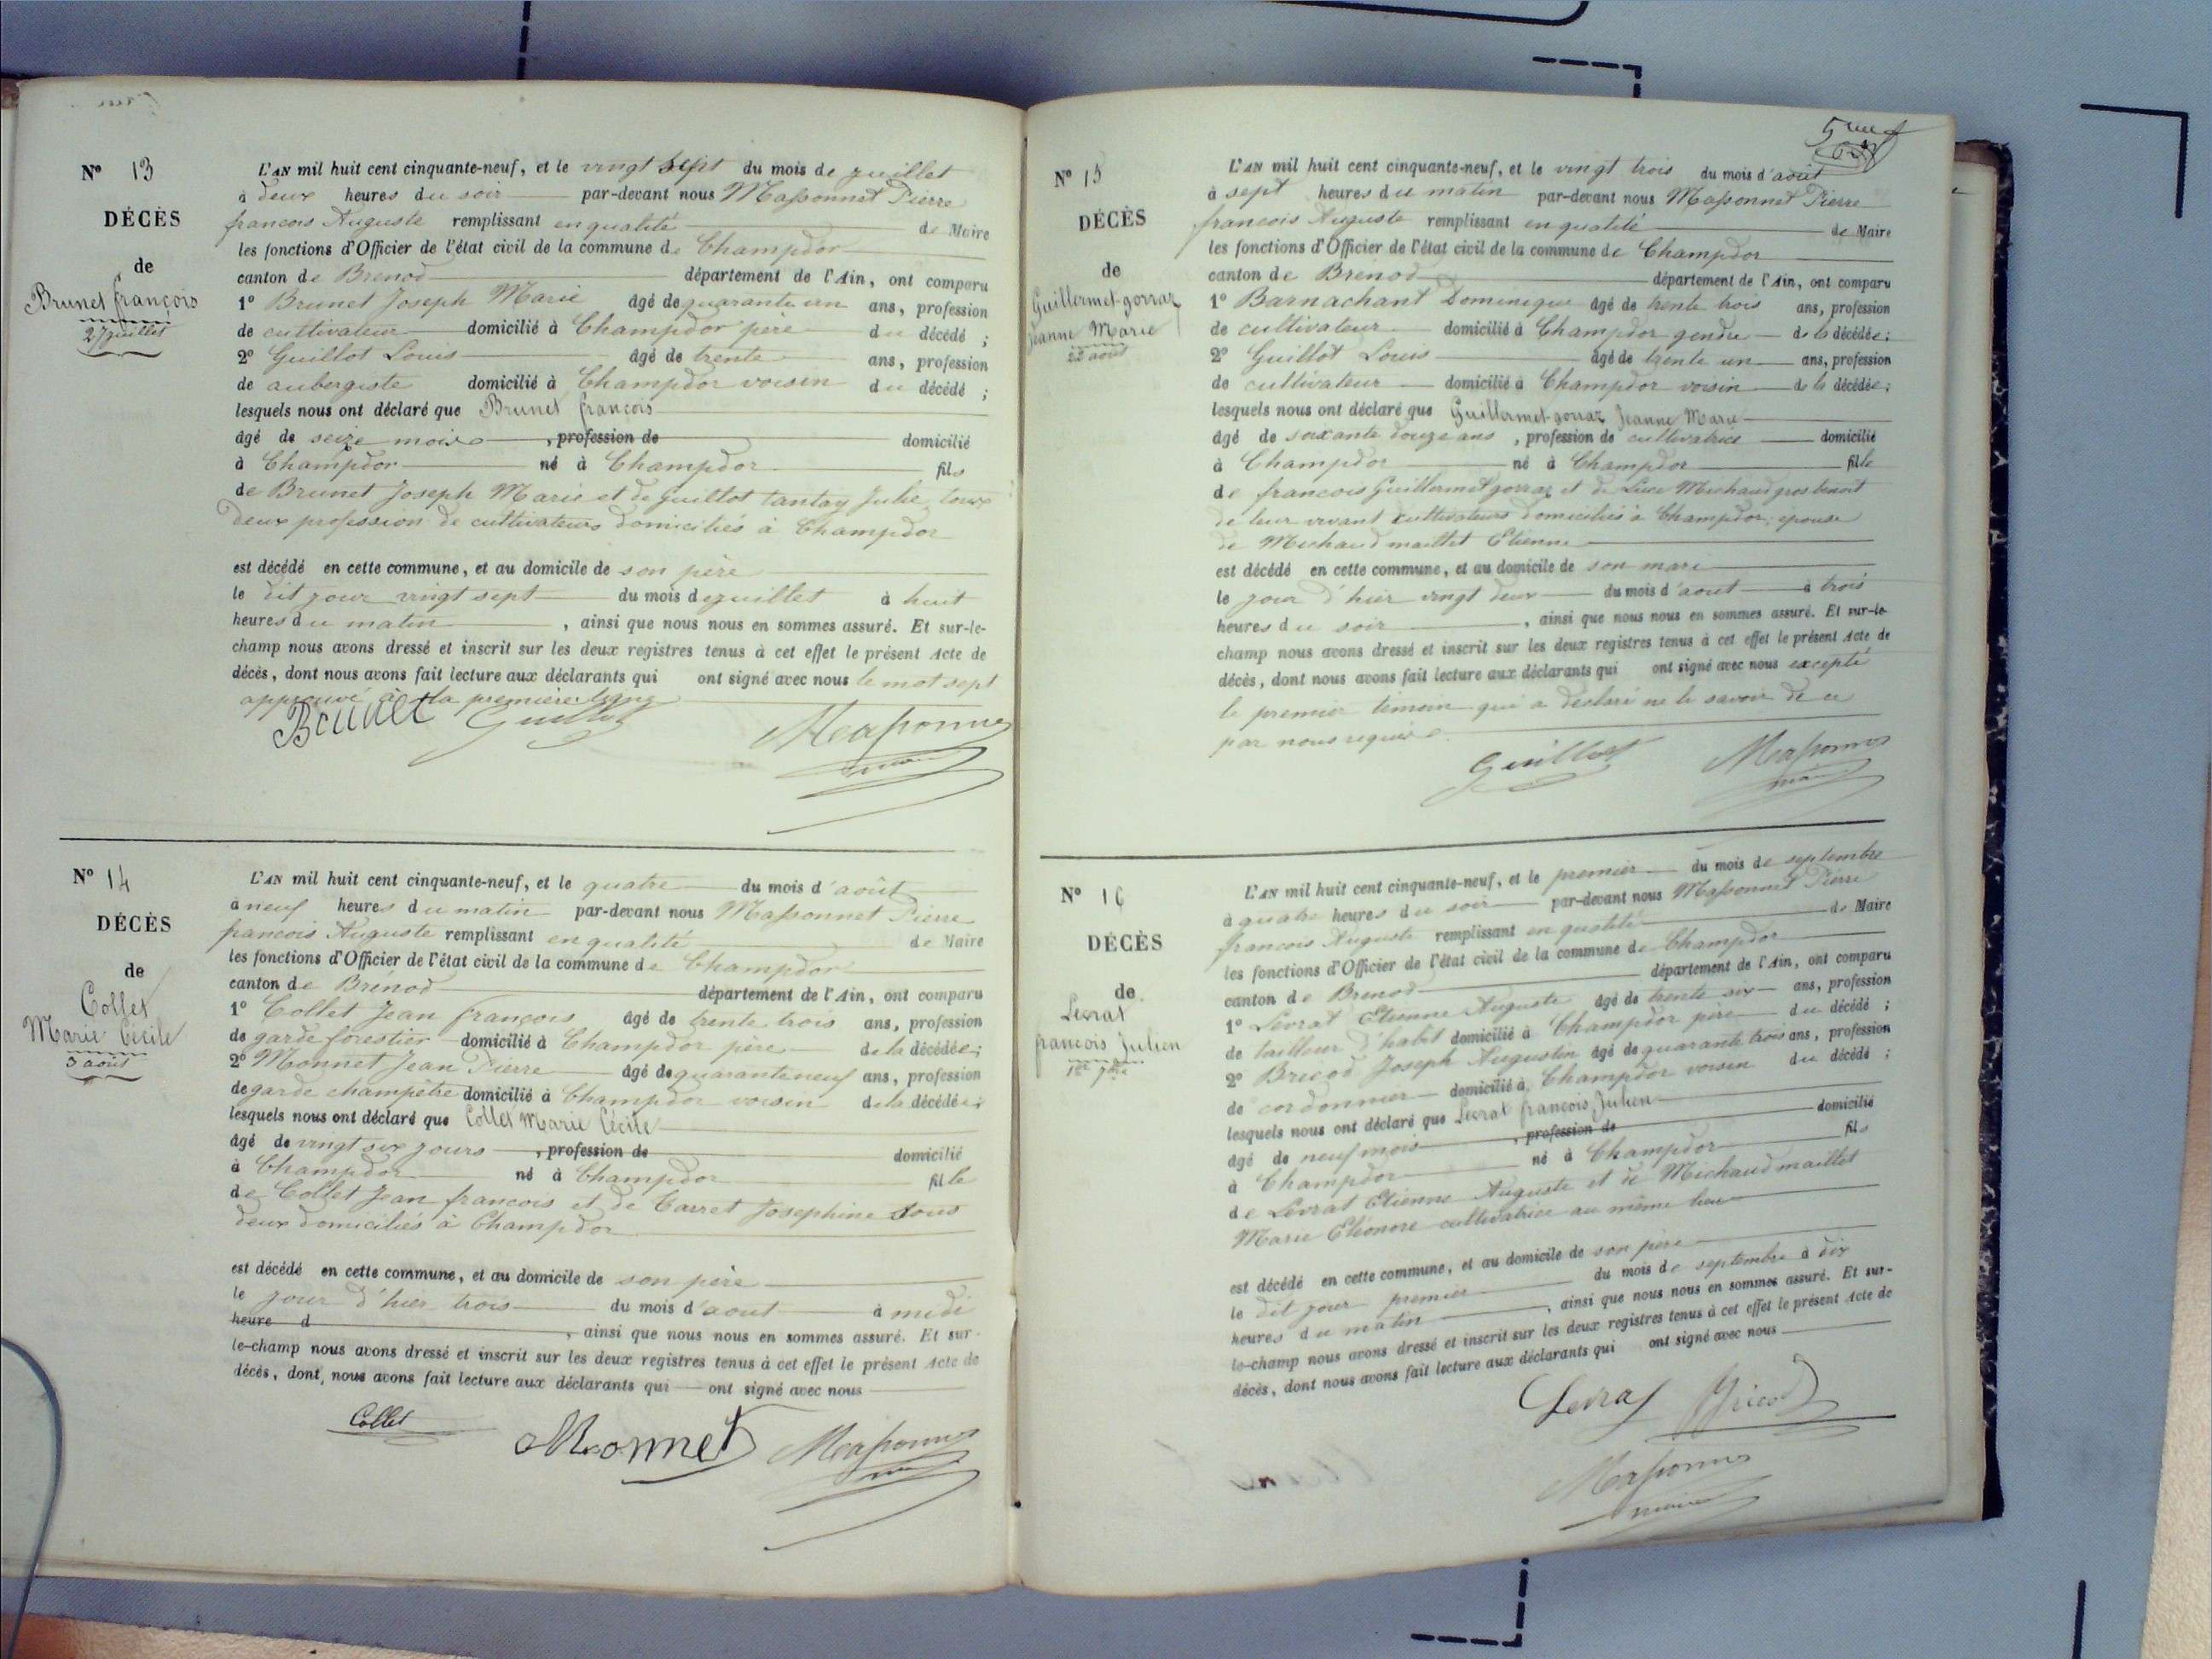 N° 13
DÉCÈS
de
Brunet françois
27 juillet
L'AN mil huit cent cinquante-neuf, et le vingt sept du mois de juillet
à deux heures du soir par-devant nous Massonnet Pierre
francois Auguste remplissant en qualité de Maire
les fonctions d'Officier de l'état civil de la commune de Champdor
canton de Brenod département de l'Ain, ont comparu
1° Brunet Joseph Marie âgé de quarante un ans, profession
de cultivateur domicilié à Champdor père du décédé ;
2° Guillot Louis âgé de trente ans, profession
de aubergiste domicilié à Champdor voisin du décédé ;
lesquels nous ont déclaré que Brunet françois
âgé de seize mois , profession de domicilié
à Champdor né à Champdor fils
de Brunet Joseph Marie et de Guillot tantay Julie tous
deux profession de cultivateurs domiciliés à Champdor
est décédé en cette commune, et au domicile de son père
le dit jour vingt sept du mois de juillet à huit
heures du matin , ainsi que nous nous en sommes assuré. Et sur-le-
champ nous avons dressé et inscrit sur les deux registres tenus à cet effet le présent Acte de
décès, dont nous avons fait lecture aux déclarants qui ont signé avec nous le mot sept
approuvé à la première ligne
Brunet Guillot Massonnet
maire
N° 14
DÉCÈS
de
Collet
Marie Cécile
3 août
L'AN mil huit cent cinquante-neuf, et le quatre du mois d'août
à neuf heures du matin par-devant nous Massonnet Pierre
francois Auguste remplissant en qualité de Maire
les fonctions d'Officier de l'état civil de la commune de Champdor
canton de Brénod département de l'Ain, ont comparu
1° Collet Jean françois âgé de trente trois ans, profession
de garde forestier domicilié à Champdor père de la décédée;
2° Monnet Jean Pierre âgé de quarante neuf ans, profession
de garde champêtre domicilié à Champdor voisin de la décédée;
lesquels nous ont déclaré que Collet Marie Cécile
âgé de vingt six jours , profession de domicilié
à Champdor né à Champdor fille
de Collet Jean francois et de Carret Josephine tous
deux domiciliés à Champdor
est décédé en cette commune, et au domicile de son père
le jour d'hier trois du mois d'aout à midi
heure d , ainsi que nous nous en sommes assuré. Et sur-
le-champ nous avons dressé et inscrit sur les deux registres tenus à cet effet le présent Acte de
décès, dont nous avons fait lecture aux déclarants qui ont signé avec nous
Collet Monnet Massonnet
N° 15
DÉCÈS
de
Guillermet-gorraz
Jeanne Marie
22 août
L'AN mil huit cent cinquante-neuf, et le vingt trois du mois d'août
à sept heures du matin par-devant nous Massonnet Pierre
francois Auguste remplissant en qualité de Maire
les fonctions d'Officier de l'état civil de la commune de Champdor
canton de Brénod département de l'Ain, ont comparu
1° Barnachant Dominique âgé de trente trois ans, profession
de cultivateur domicilié à Champdor gendre de la décédée;
2° Guillot Louis âgé de trente un ans, profession
de cultivateur domicilié à Champdor voisin de la décédée;
lesquels nous ont déclaré que Guillermet-gorraz Jeanne Marie
âgé de soixante douze ans , profession de cultivatrice domicilié
à Champdor né à Champdor fille
de francois Guillermet gorraz et de Luce Michaud gros benoit
de leur vivant cultivateurs domiciliés à Champdor, épouse
de Michaud maillet Etienne
est décédé en cette commune, et au domicile de son mari
le jour d'hier vingt deux du mois d'aout à trois
heures du soir , ainsi que nous nous en sommes assuré. Et sur-le-
champ nous avons dressé et inscrit sur les deux registres tenus à cet effet le présent Acte de
décès, dont nous avons fait lecture aux déclarants qui ont signé avec nous excepté
le premier témoin qui a déclaré ne le savoir de ce
par nous requis
Guillot Massonnet
maire
N° 16
DÉCÈS
de
Levrat
francois Julien
1er 7bre
L'AN mil huit cent cinquante-neuf, et le premier du mois de septembre
à quatre heures du soir par-devant nous Massonnet Pierre
francois Auguste remplissant en qualité de Maire
les fonctions d'Officier de l'état civil de la commune de Champdor
canton de Brenod département de l'Ain, ont comparu
1° Levrat Etienne Auguste âgé de trente six ans, profession
de tailleur d'habit domicilié à Champdor père du décédé ;
2° Bricod Joseph Augustin âgé de quarante trois ans, profession
de cordonnier domicilié à Champdor voisin du décédé ;
lesquels nous ont déclaré que Levrat françois Julien
âgé de neuf mois , profession de domicilié
à Champdor né à Champdor fils
de Levrat Etienne Auguste et de Michaud maillet
Marie Eléonore cultivatrice au même lieu
est décédé en cette commune, et au domicile de son père
le dit jour premier du mois de septembre à dix
heures du matin , ainsi que nous nous en sommes assuré. Et sur-
le-champ nous avons dressé et inscrit sur les deux registres tenus à cet effet le présent Acte de
décès, dont nous avons fait lecture aux déclarants qui ont signé avec nous
Levrat Bricod
Massonnet
maire